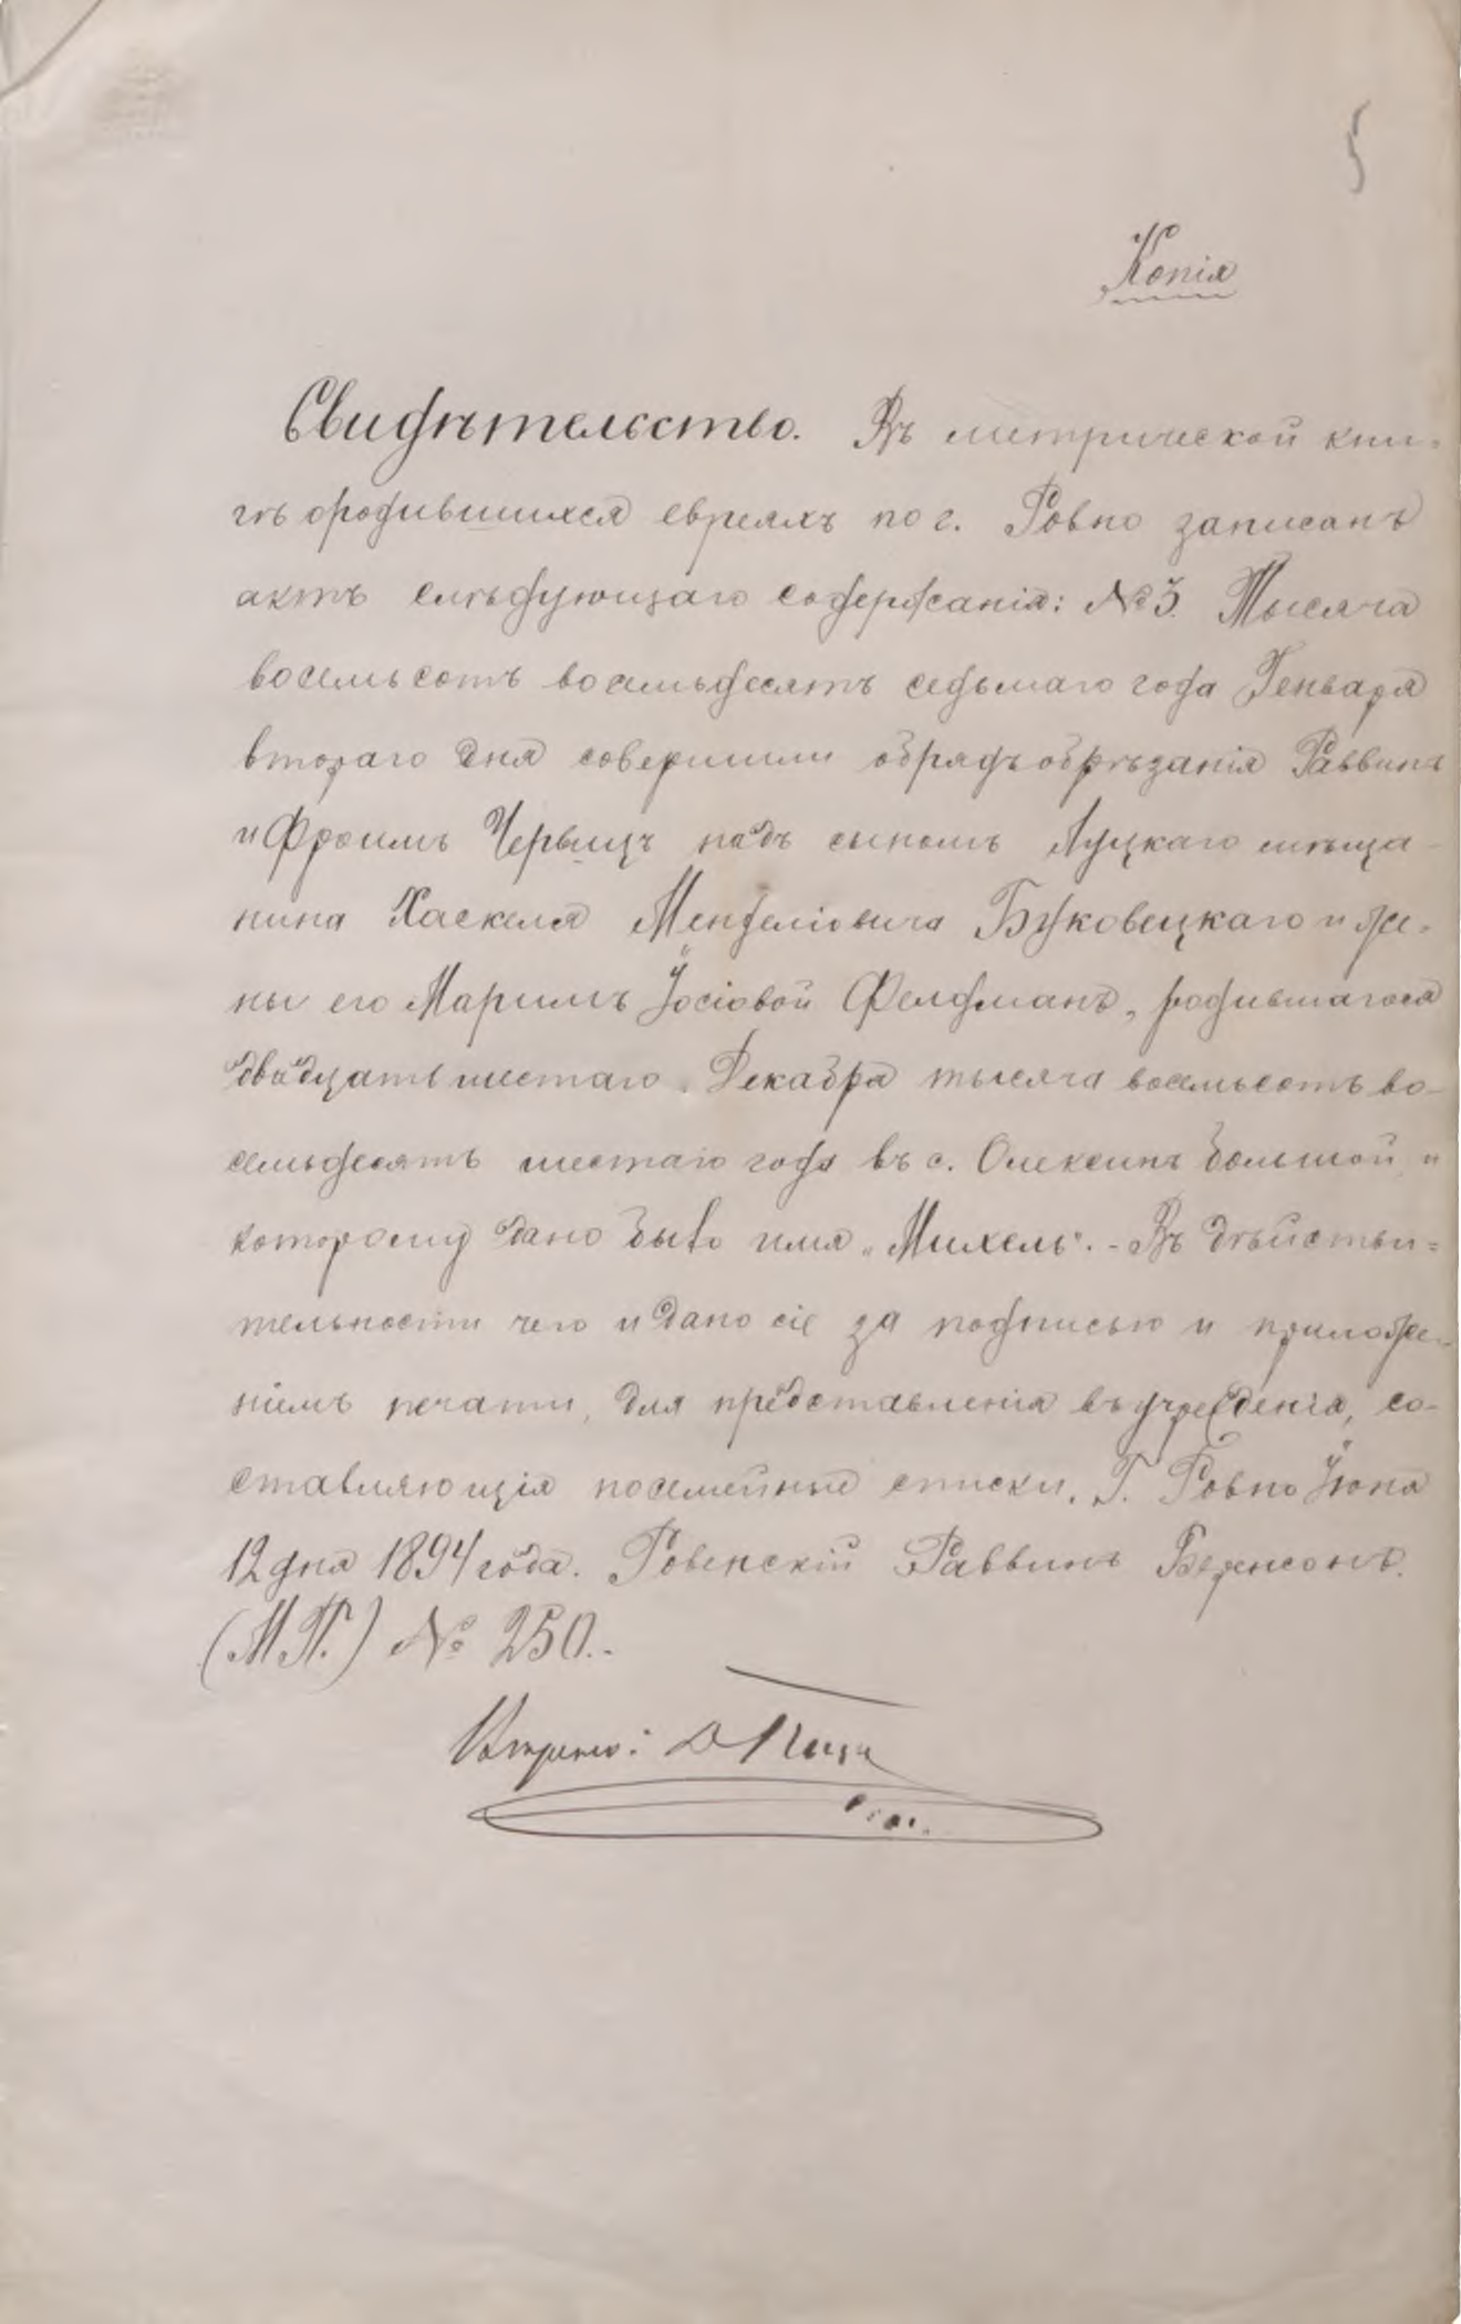 5
Копія
Свидѣтельство. Въ метрической кни=
гѣ о родившихся евреяхъ по г. Ровно записанъ
актъ слѣдующаго содержанія: № 3. Тысяча
восемьсотъ восемьдесятъ седьмаго года Генваря
втораго дня совершили обрядъ обрѣзанія Раввинъ
и Фроимъ Червицъ надъ сыномъ Луцкаго мѣща-
нина Хаскеля Менделіовича Буковецкаго и же-
ны его Маримъ Іосіовой Фелдманъ, родившагося
двадцать шестаго Декабря тысяча восемьсотъ во-
семьдесятъ шестаго года въ с. Олексинъ большой и
которому дано было имя „Михель". - Въ дѣйстви=
тельности чего и дано сіе за подписью и приложе-
ніемъ печати, для представленія въ учрежденія, со-
ставляющія посемейные списки. Г. Ровно Іюня
12 дня 1894 года. Ровенскій Раввинъ Беренсонъ.
(М.П.) № 250.-